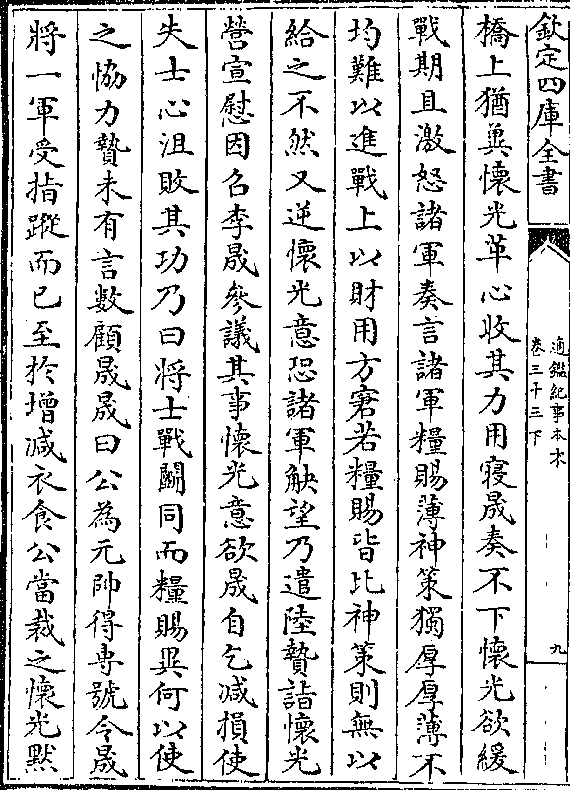 欽定四庫全書
通鑑紀事本末
卷三十三下
九
橋上猶冀懷光革心收其力用寢晟奏不下懷光欲緩
戰期且激怒諸軍奏言諸軍糧賜薄神策獨厚厚薄不
均難以進戰上以財用方窘若糧賜皆比神策則無以
給之不然又逆懷光意恐諸軍觖望乃遣陸贄詣懷光
營宣慰因召李晟參議其事懷光意欲晟自乞減損使
失士心沮敗其功乃曰將士戰鬬同而糧賜異何以使
之恊力贄未有言數顧晟晟曰公為元帥得専號令晟
將一軍受指蹤而已至於增減衣食公當裁之懷光黙